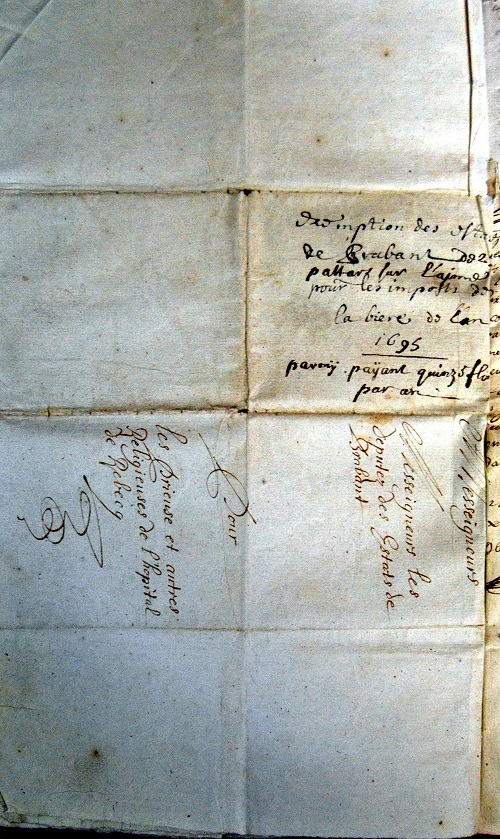 Exemption des estas
de Brabant de 2
pattars sur l'aime
pour les imposts de
la biere de l'an
1695
parmÿ payant quinze flo
par an
Messeigneurs
Messeigneurs les
deputez des Estats de
Brabant
Pour
les Prieuse et autres
Religieuses de l'hopital
de Rebecq